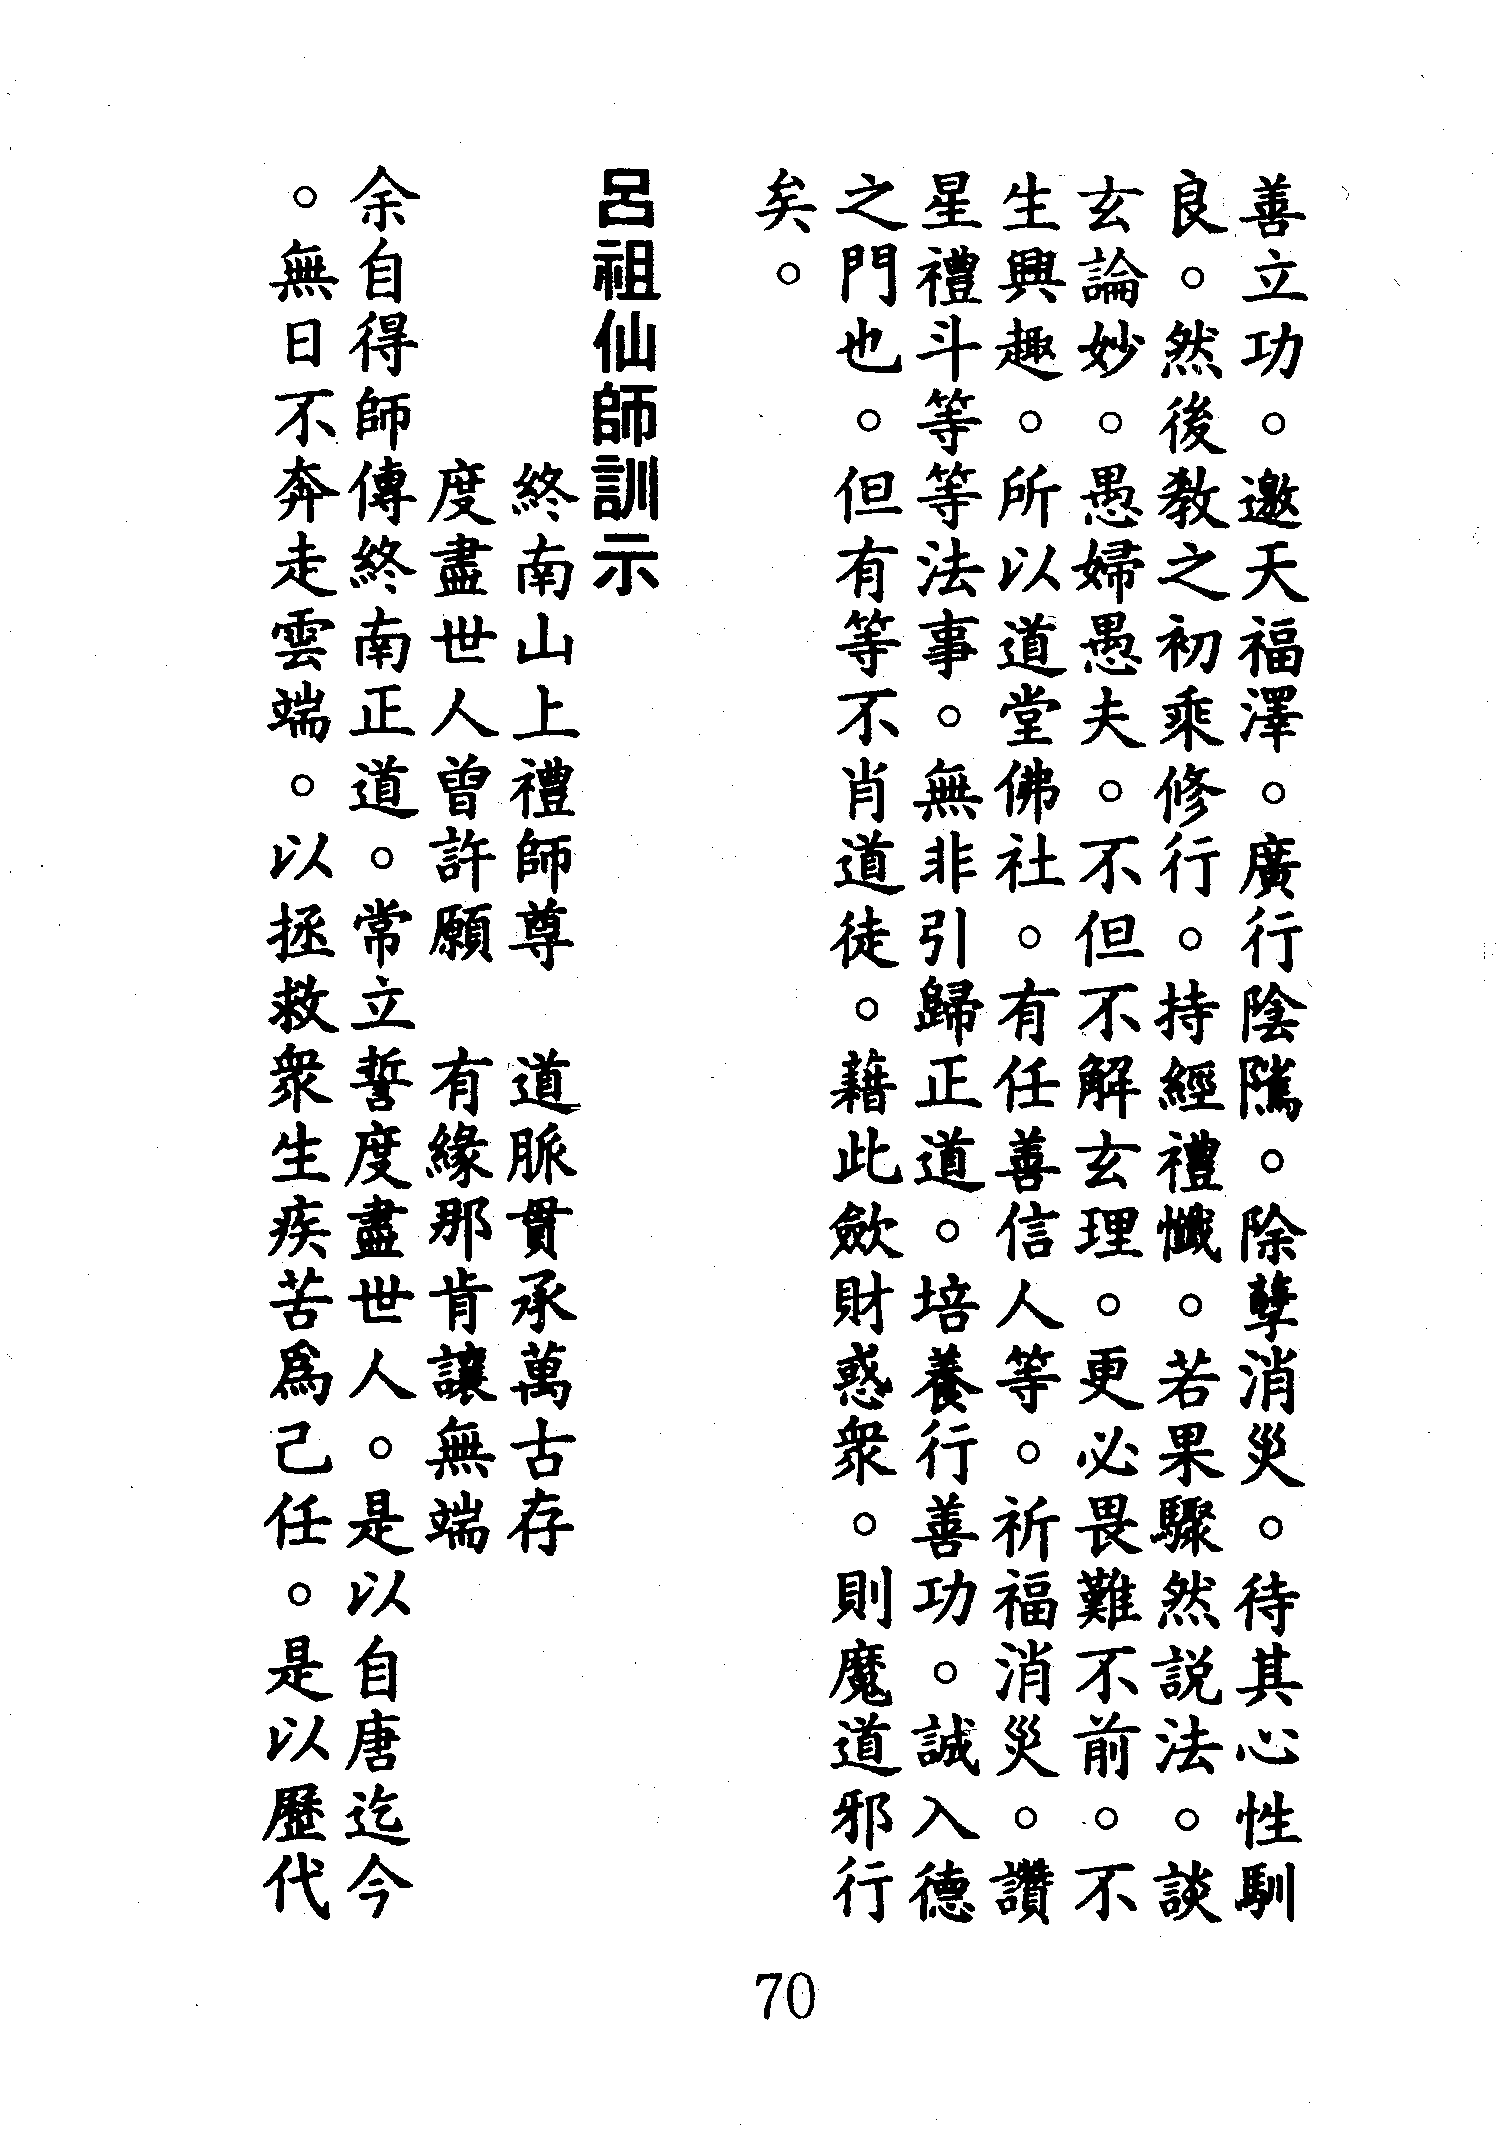 善立功。邀天福澤。廣行陰隲。除孽消災。待其心性馴
良。然後教之初乘修行。持經禮懺。若果驟然說法。談
玄論妙。愚婦愚夫。不但不解玄理。更必畏難不前。不
生興趣。所以道堂佛社。有任善信人等。祈福消災。讚
星禮斗等等法事。無非引歸正道。培養行善功。誠入德
之門也。但有等不肖道徒。藉此歛財惑衆。則魔道邪行
矣。
呂祖仙師訓示
終南山上禮師尊　道脈貫承萬古存
度盡世人曾許願　有緣那肯讓無端
余自得師傳終南正道。常立誓度盡世人。是以自唐迄今
。無日不奔走雲端。以拯救衆生疾苦爲己任。是以歷代
70